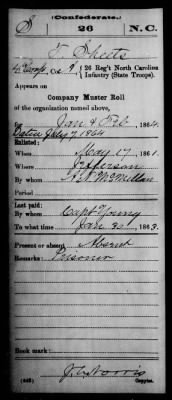 (Confederate.)
S 26 N.C.
E. Sheets
Co. 26 Reg't North Carolina
Infantry (State Troops).
Appears on
Company Muster Roll
of the organization named above,
for Jan & Feb, 1864.
Dated July 7 1864
Enlisted:
When May 17, 1861.
Where Jefferson
By whom A. N. McMillan
Period
Last paid:
By whom Capt Young
To what time 1863.
Present or absent Absent
Remarks: Prisoner
Book mark:
J. C. Norris
Copyist.